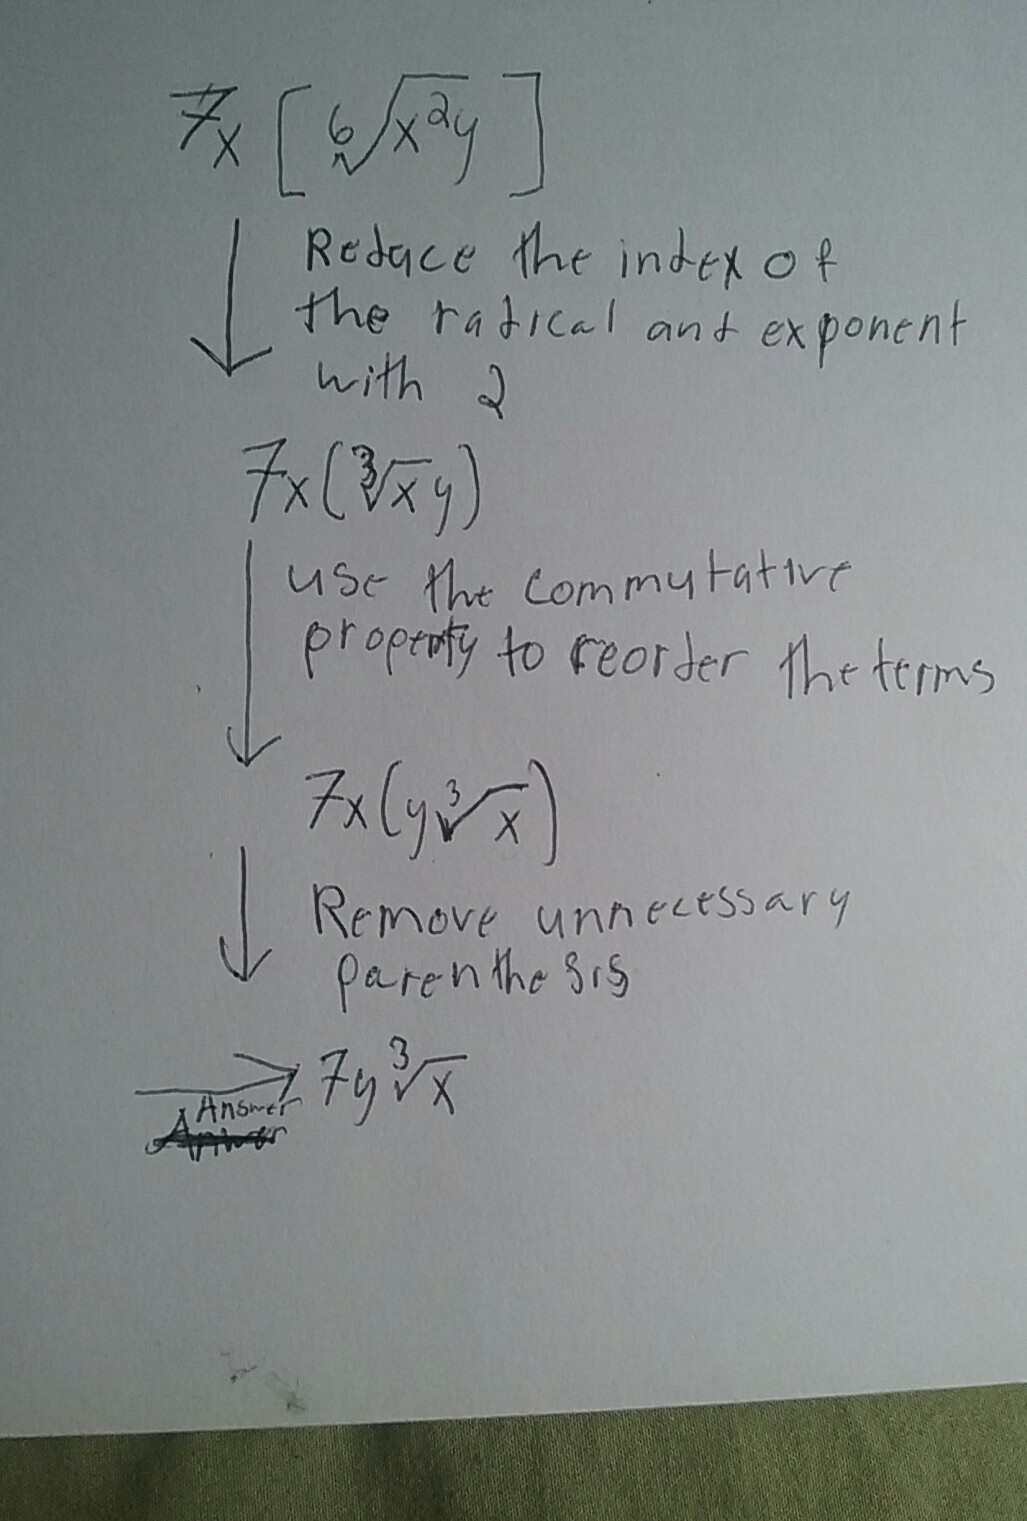 7x [ ⁶√x²y ]
Reduce the index of
the radical and exponent
with 2
7x(³√x y)
use the commutative
property to reorder the terms
7x(y³√x)
Remove unnecessary
parenthesis
7y ³√x
Answer